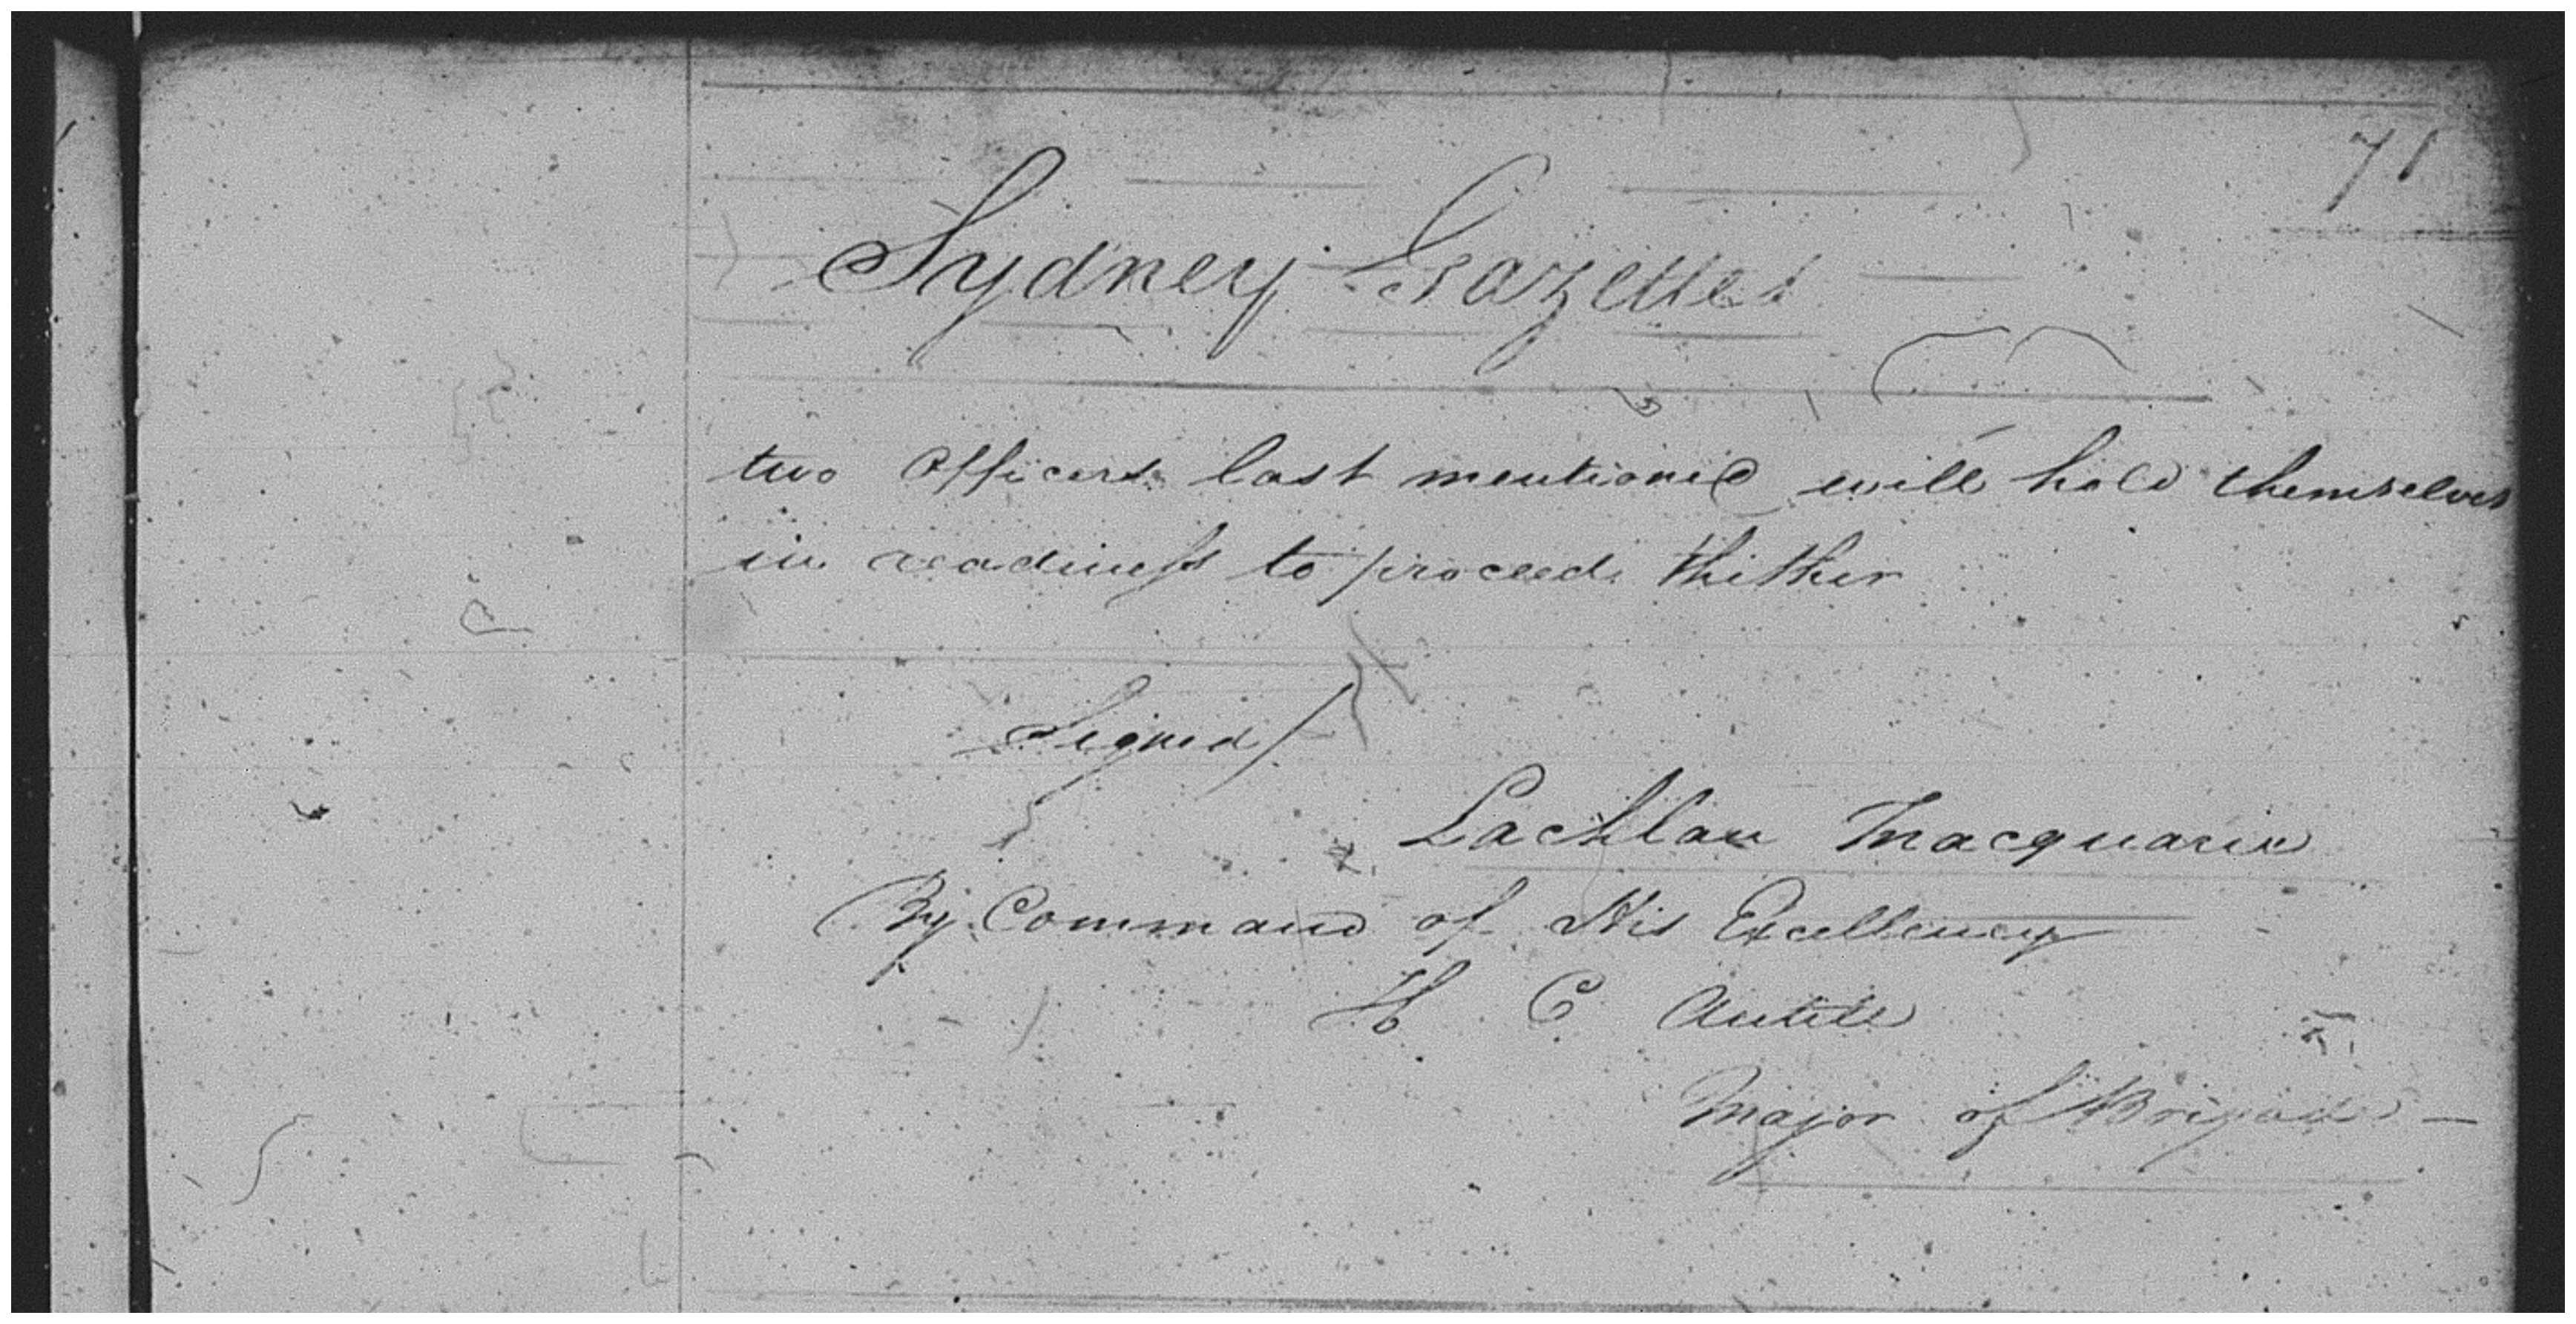 71
Sydney Gazettes
two Officers last mentioned will hold themselves
in readiness to proceed thither
Signed /
Lachlan Macquarie
By Command of His Excellency
H C Antill
Major of Brigade —